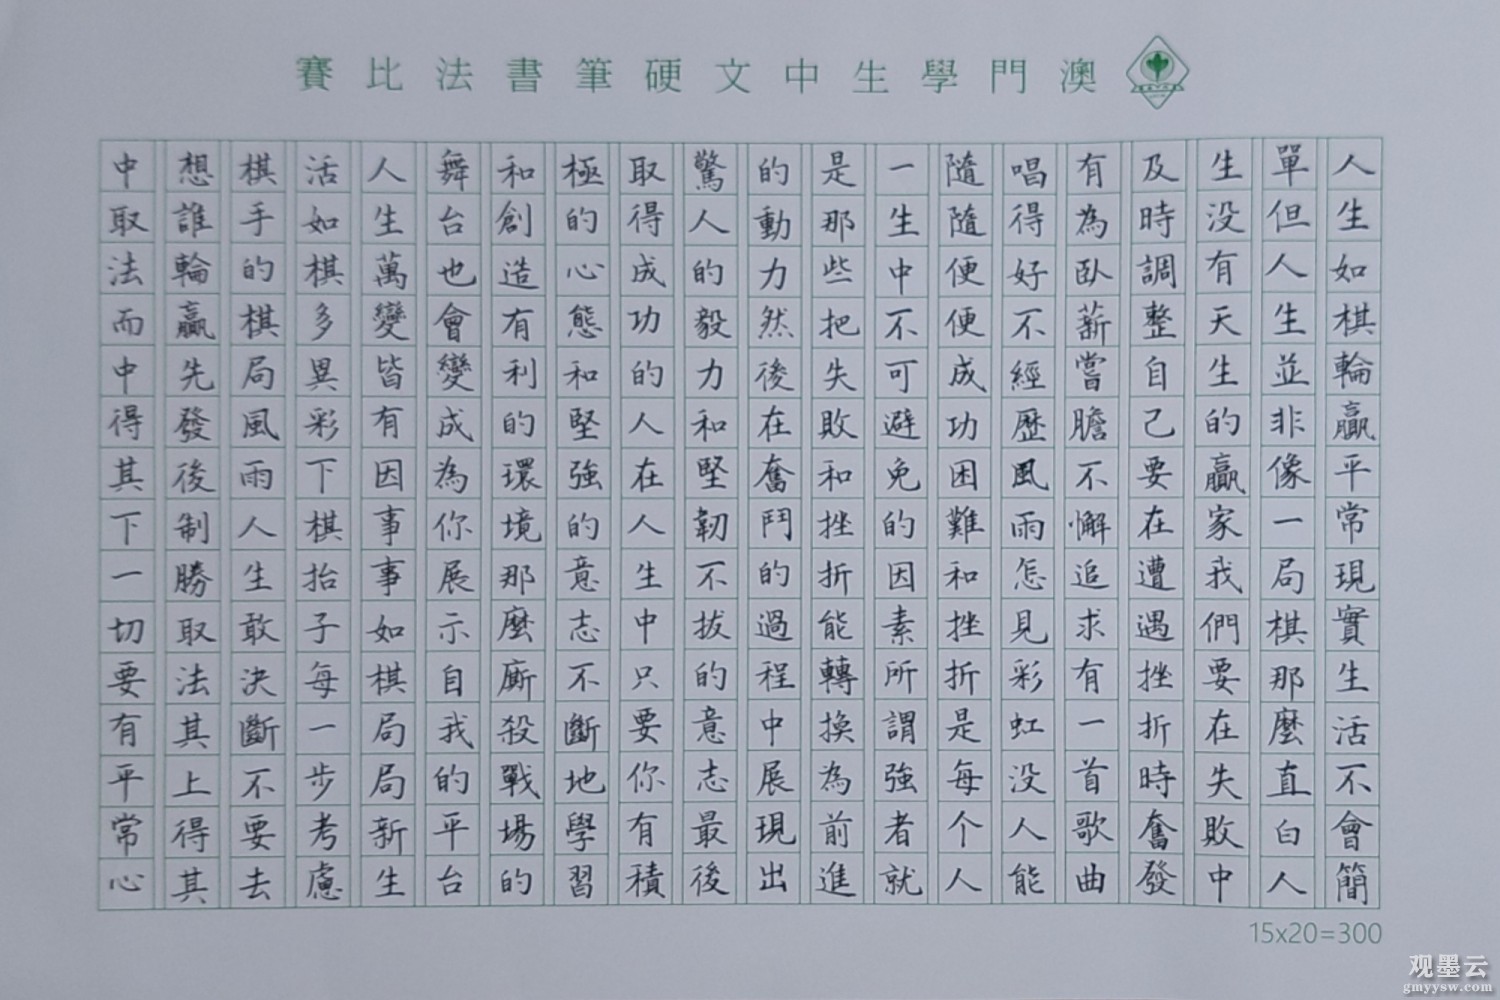 澳門學生中文硬筆書法比賽
人生如棋輪贏平常現實生活不會簡
單但人生並非像一局棋那麼直白人
生没有天生的贏家我們要在失敗中
及時調整自己要在遭遇挫折時奮發
有為臥薪嘗膽不懈追求有一首歌曲
唱得好不經歷風雨怎見彩虹没人能
隨隨便便成功困難和挫折是每个人
一生中不可避免的因素所謂強者就
是那些把失敗和挫折能轉換為前進
的動力然後在奮鬥的過程中展現出
驚人的毅力和堅韌不拔的意志最後
取得成功的人在人生中只要你有積
極的心態和堅強的意志不斷地學習
和創造有利的環境那麼廝殺戰場的
舞台也會變成為你展示自我的平台
人生萬變皆有因事事如棋局局新生
活如棋多異彩下棋抬子每一步考慮
棋手的棋局風雨人生敢決斷不要去
想誰輪贏先發後制勝取法其上得其
中取法而中得其下一切要有平常心
15x20=300
观墨云
gmyysw.com